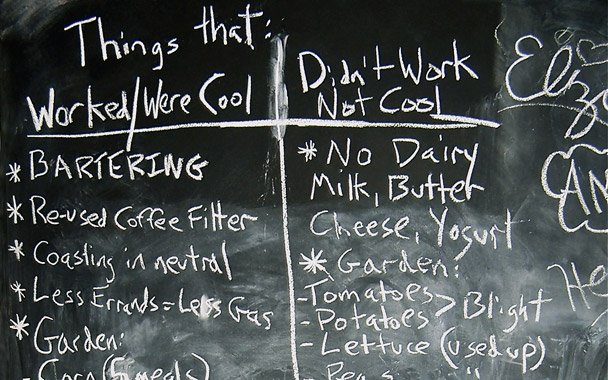 Things that:
Worked/Were Cool
* BARTERING
* Re-used Coffee Filter
* Coasting in neutral
* Less Errands = Less Gas
* Garden:
- Corn (5 meals)
Didn't Work
Not Cool
* No Dairy
Milk, Butter
Cheese, Yogurt
* Garden:
- Tomatoes > Blight
- Potatoes
- Lettuce (used up)
- Peas "